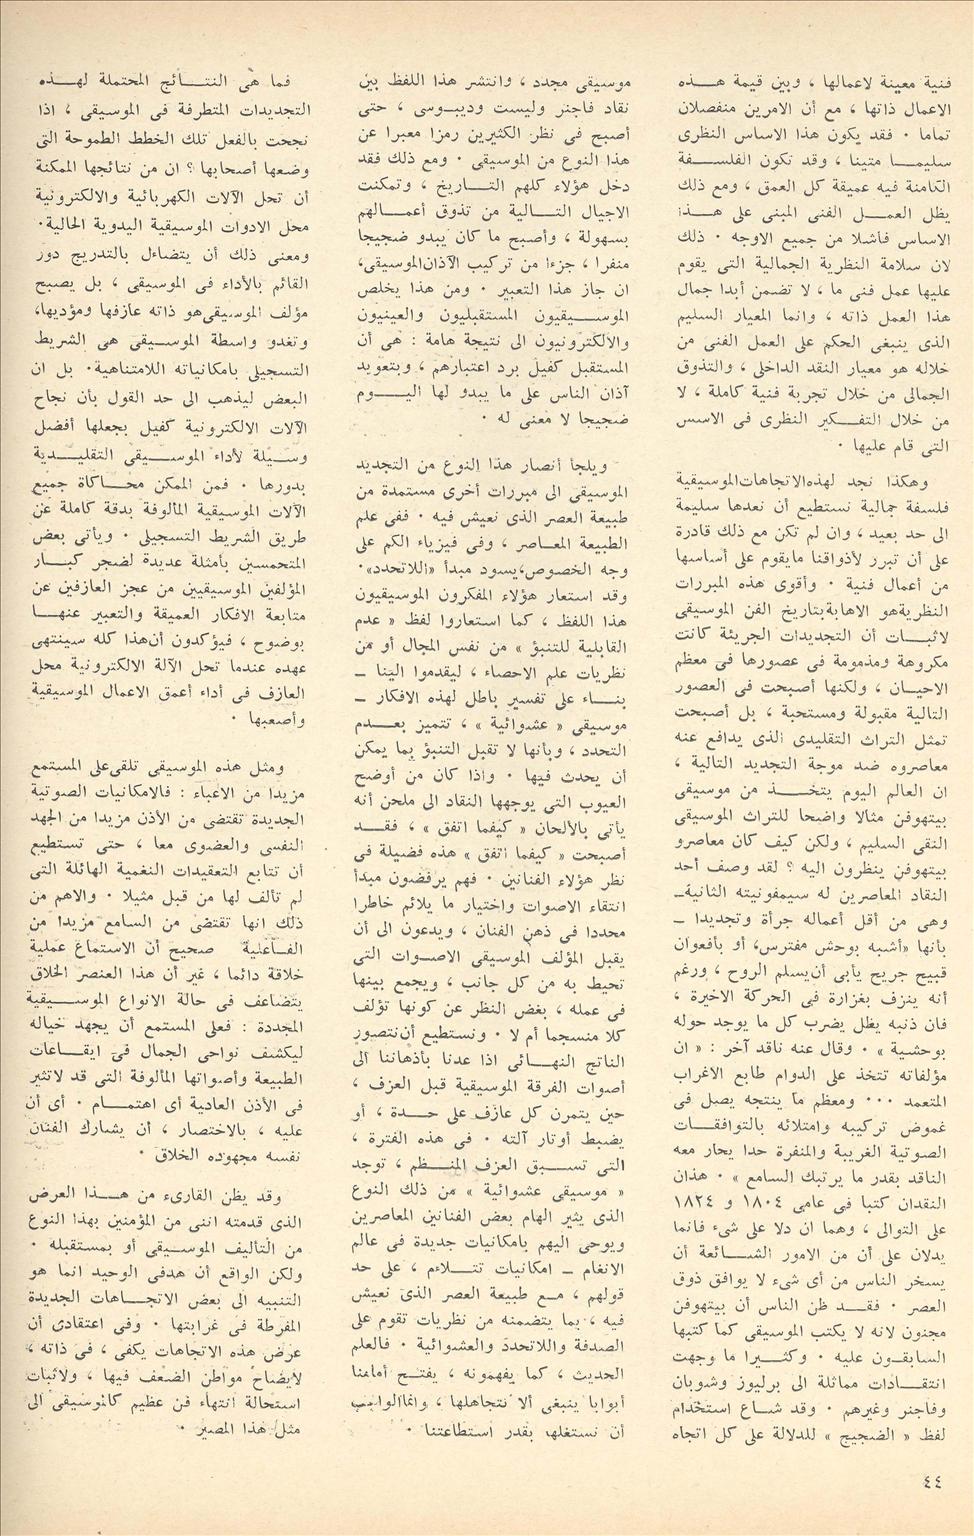 فنية معينة لاعمالها ، وبين قيمة هـــذه
الاعمال ذاتها ، مع أن الامرين منفصلان
تماما ٠ فقد يكون هذا الاساس النظرى
سليمــا متينا ، وقد تكون الفلســفة
الكامنة فيه عميقة كل العمق ، ومع ذلك
يظل العمــل الفنى المبنى على هــذا
الاساس فاشلا من جميع الاوجه ٠ ذلك
لان سلامة النظرية الجمالية التى يقوم
عليها عمل فنى ما ، لا تضمن أبدا جمال
هذا العمل ذاته ، وانما المعيار السليم
الذى ينبغى الحكم على العمل الفنى من
خلاله هو معيار النقد الداخلى ، والتذوق
الجمالى من خلال تجربة فنية كاملة ، لا
من خلال التفــكير النظرى فى الاسس
التى قام عليها ٠
وهكذا نجد لهذه الاتجاهات الموسيقية
فلسفة جمالية نستطيع أن نعدها سليمة
الى حد بعيد ، وان لم تكن مع ذلك قادرة
على أن تبرر لأذواقنا مايقوم على أساسها
من أعمال فنية ٠ وأقوى هذه المبررات
النظرية هو الاهابة بتاريخ الفن الموسيقى
لاثبــات أن التجديدات الجريئة كانت
مكروهة ومذمومة فى عصورها فى معظم
الاحيــان ، ولكنها أصبحت فى العصور
التالية مقبولة ومستحبة ، بل أصبحت
تمثل التراث التقليدى الذى يدافع عنه
معاصروه ضد موجة التجديد التالية ،
ان العالم اليوم يتخــذ من موسيقى
بيتهوفن مثالا واضحا للتراث الموسيقى
النقى السليم ، ولكن كيف كان معاصرو
بيتهوفن ينظرون اليه ؟ لقد وصف أحد
النقاد المعاصرين له سيمفونيته الثانية ــ
وهى من أقل أعماله جرأة وتجديدا ــ
بأنها «أشبه بوحش مفترس، أو بأفعوان
قبيح جريح يأبى أن يسلم الروح ، ورغم
أنه ينزف بغزارة فى الحركة الاخيرة ،
فان ذنبه يظل يضرب كل ما يوجد حوله
بوحشية » ٠ وقال عنه ناقد آخر : « ان
مؤلفاته تتخذ على الدوام طابع الاغراب
المتعمد ٠٠٠ ومعظم ما ينتجه يصل فى
غموض تركيبه وامتلائه بالتوافقــات
الصوتية الغريبة والمنفرة حدا يحار معه
الناقد بقدر ما يرتبك السامع » ٠ هذان
النقدان كتبا فى عامى ١٨٠٤ و ١٨٢٤
على التوالى ، وهما ان دلا على شىء فانما
يدلان على أن من الامور الشــائعة أن
يسخر الناس من أى شىء لا يوافق ذوق
العصر ٠ فقــد ظن الناس أن بيتهوفن
مجنون لانه لا يكتب الموسيقى كما كتبها
السابقــون عليه ٠ وكثــيرا ما وجهت
انتقــادات مماثلة الى برليوز وشوبان
وفاجنر وغيرهم ٠ وقد شــاع استخدام
لفظ « الضجيج » للدلالة على كل اتجاه
موسيقى مجدد ، وانتشر هذا اللفظ بين
نقاد فاجنر وليست وديبــوسى ، حتى
أصبح فى نظر الكثيرين رمزا معبرا عن
هذا النوع من الموسيقى ٠ ومع ذلك فقد
دخل هؤلاء كلهم التــاريخ ، وتمكنت
الاجيال التــالية من تذوق أعمــالهم
بسهولة ، وأصبح ما كان يبدو ضجيجا
منفرا ، جزءا من تركيب الآذان الموسيقى،
ان جاز هذا التعبير ٠ ومن هذا يخلص
الموســيقيون المستقبليون والعينيون
والالكترونيون الى نتيجة هامة : هى أن
المستقبل كفيل برد اعتبارهم ، وبتعويد
آذان الناس على ما يبدو لها اليــوم
ضجيجا لا معنى له ٠
ويلجأ أنصار هذا النوع من التجديد
الموسيقى الى مبررات أخرى مستمدة من
طبيعة العصر الذى نعيش فيه ٠ ففى علم
الطبيعة المعــاصر ، وفى فيزياء الكم على
وجه الخصوص، يسود مبدأ «اللاتحدد»٠
وقد استعار هؤلاء المفكرون الموسيقيون
هذا اللفظ ، كما استعاروا لفظ « عدم
القابلية للتنبؤ » من نفس المجال أو من
نظريات علم الاحصاء ، ليقدموا الينا ــ
بنــاء على تفسير باطل لهذه الافكار ــ
موسيقى « عشوائية » ، تتميز بعــدم
التحدد ، وبأنها لا تقبل التنبؤ بما يمكن
أن يحدث فيها ٠ واذا كان من أوضح
العيوب التى يوجهها النقاد الى ملحن أنه
يأتى بالألحان « كيفما اتفق » ، فقــد
أصبحت « كيفما اتفق » هذه فضيلة فى
نظر هؤلاء الفنانين ٠ فهم يرفضون مبدأ
انتقاء الاصوات واختيار ما يلائم خاطرا
محددا فى ذهن الفنان ، ويدعون الى أن
يقبل المؤلف الموسيقى الاصــوات التى
تحيط به من كل جانب ، ويجمع بينها
فى عمله ، بغض النظر عن كونها تؤلف
كلا منسجما أم لا ٠ ونستطيع أن نتصور
الناتج النهــائى اذا عدنا بأذهاننا الى
أصوات الفرقة الموسيقية قبل العزف ،
حين يتمرن كل عازف على حــدة ، أو
يضبط أوتار آلته ٠ فى هذه الفترة ،
التى تســبق العزف المنــظم ، توجد
« موسيقى عشوائية » من ذلك النوع
الذى يثير الهام بعض الفنانين المعاصرين
ويوحى اليهم بامكانيات جديدة فى عالم
الانغام ــ امكانيات تتــلاءم ، على حد
قولهم ، مــع طبيعة العصر الذى نعيش
فيه ، بما يتضمنه من نظريات تقوم على
الصدفة واللاتحدد والعشوائية ٠ فالعلم
الحديث ، كما يفهمونه ، يفتــح أمامنا
أبوابا ينبغى ألا نتجاهلها ، وانما الواجب
أن نستغلها بقدر استطاعتنا ٠
فما هى النتــائج المحتملة لهــذه
التجديدات المتطرفة فى الموسيقى ، اذا
نجحت بالفعل تلك الخطط الطموحة التى
وضعها أصحابها ؟ ان من نتائجها الممكنة
أن تحل الآلات الكهربائية والالكترونية
محل الادوات الموسيقية اليدوية الحالية٠
ومعنى ذلك أن يتضاءل بالتدريج دور
القائم بالأداء فى الموسيقى ، بل يصبح
مؤلف الموسيقى هو ذاته عازفها ومؤديها،
وتغدو واسطة الموســيقى هى الشريط
التسجيلى بامكانياته اللامتناهية٠ بل ان
البعض ليذهب الى حد القول بأن نجاح
الآلات الالكترونية كفيل بجعلها أفضل
وســيلة لأداء الموســيقى التقليــدية
بدورها ٠ فمن الممكن محــاكاة جميع
الآلات الموسيقية المألوفة بدقة كاملة عن
طريق الشريط التسجيلى ٠ ويأتى بعض
المتحمسين بأمثلة عديدة لضجر كبــار
المؤلفين الموسيقيين من عجز العازفين عن
متابعة الافكار العميقة والتعبير عنهــا
بوضوح ، فيؤكدون أن هذا كله سينتهى
عهده عندما تحل الآلة الالكترونية محل
العازف فى أداء أعمق الاعمال الموسيقية
وأصعبها ٠
ومثل هذه الموسيقى تلقى على المستمع
مزيدا من الاعباء : فالامكانيات الصوتية
الجديدة تقتضى من الأذن مزيدا من الجهد
النفسى والعضوى معا ، حتى تستطيع
أن تتابع التعقيدات النغمية الهائلة التى
لم تألف لها من قبل مثيلا ٠ والاهم من
ذلك انها تقتضى من السامع مزيدا من
الفــاعلية صحيح أن الاستماع عملية
خلاقة دائما ، غير أن هذا العنصر الخلاق
يتضاعف فى حالة الانواع الموســيقية
المجددة : فعلى المستمع أن يجهد خياله
ليكشف نواحى الجمال فى ايقــاعات
الطبيعة وأصواتها المألوفة التى قد لاتثير
فى الأذن العادية أى اهتمــام ٠ أى أن
عليه ، بالاختصار ، أن يشارك الفنان
نفسه مجهوده الخلاق ٠
وقد يظن القارىء من هــذا العرض
الذى قدمته اننى من المؤمنين بهذا النوع
من التأليف الموســيقى أو بمستقبله ٠
ولكن الواقع أن هدفى الوحيد انما هو
التنبيه الى بعض الاتجــاهات الجديدة
المفرطة فى غرابتها ٠ وفى اعتقادى أن
عرض هذه الاتجاهات يكفى ، فى ذاته ،
لايضاح مواطن الضعف فيها ، ولاثبات
استحالة انتهاء فن عظيم كالموسيقى الى
مثل هذا المصير ٠
٤٤